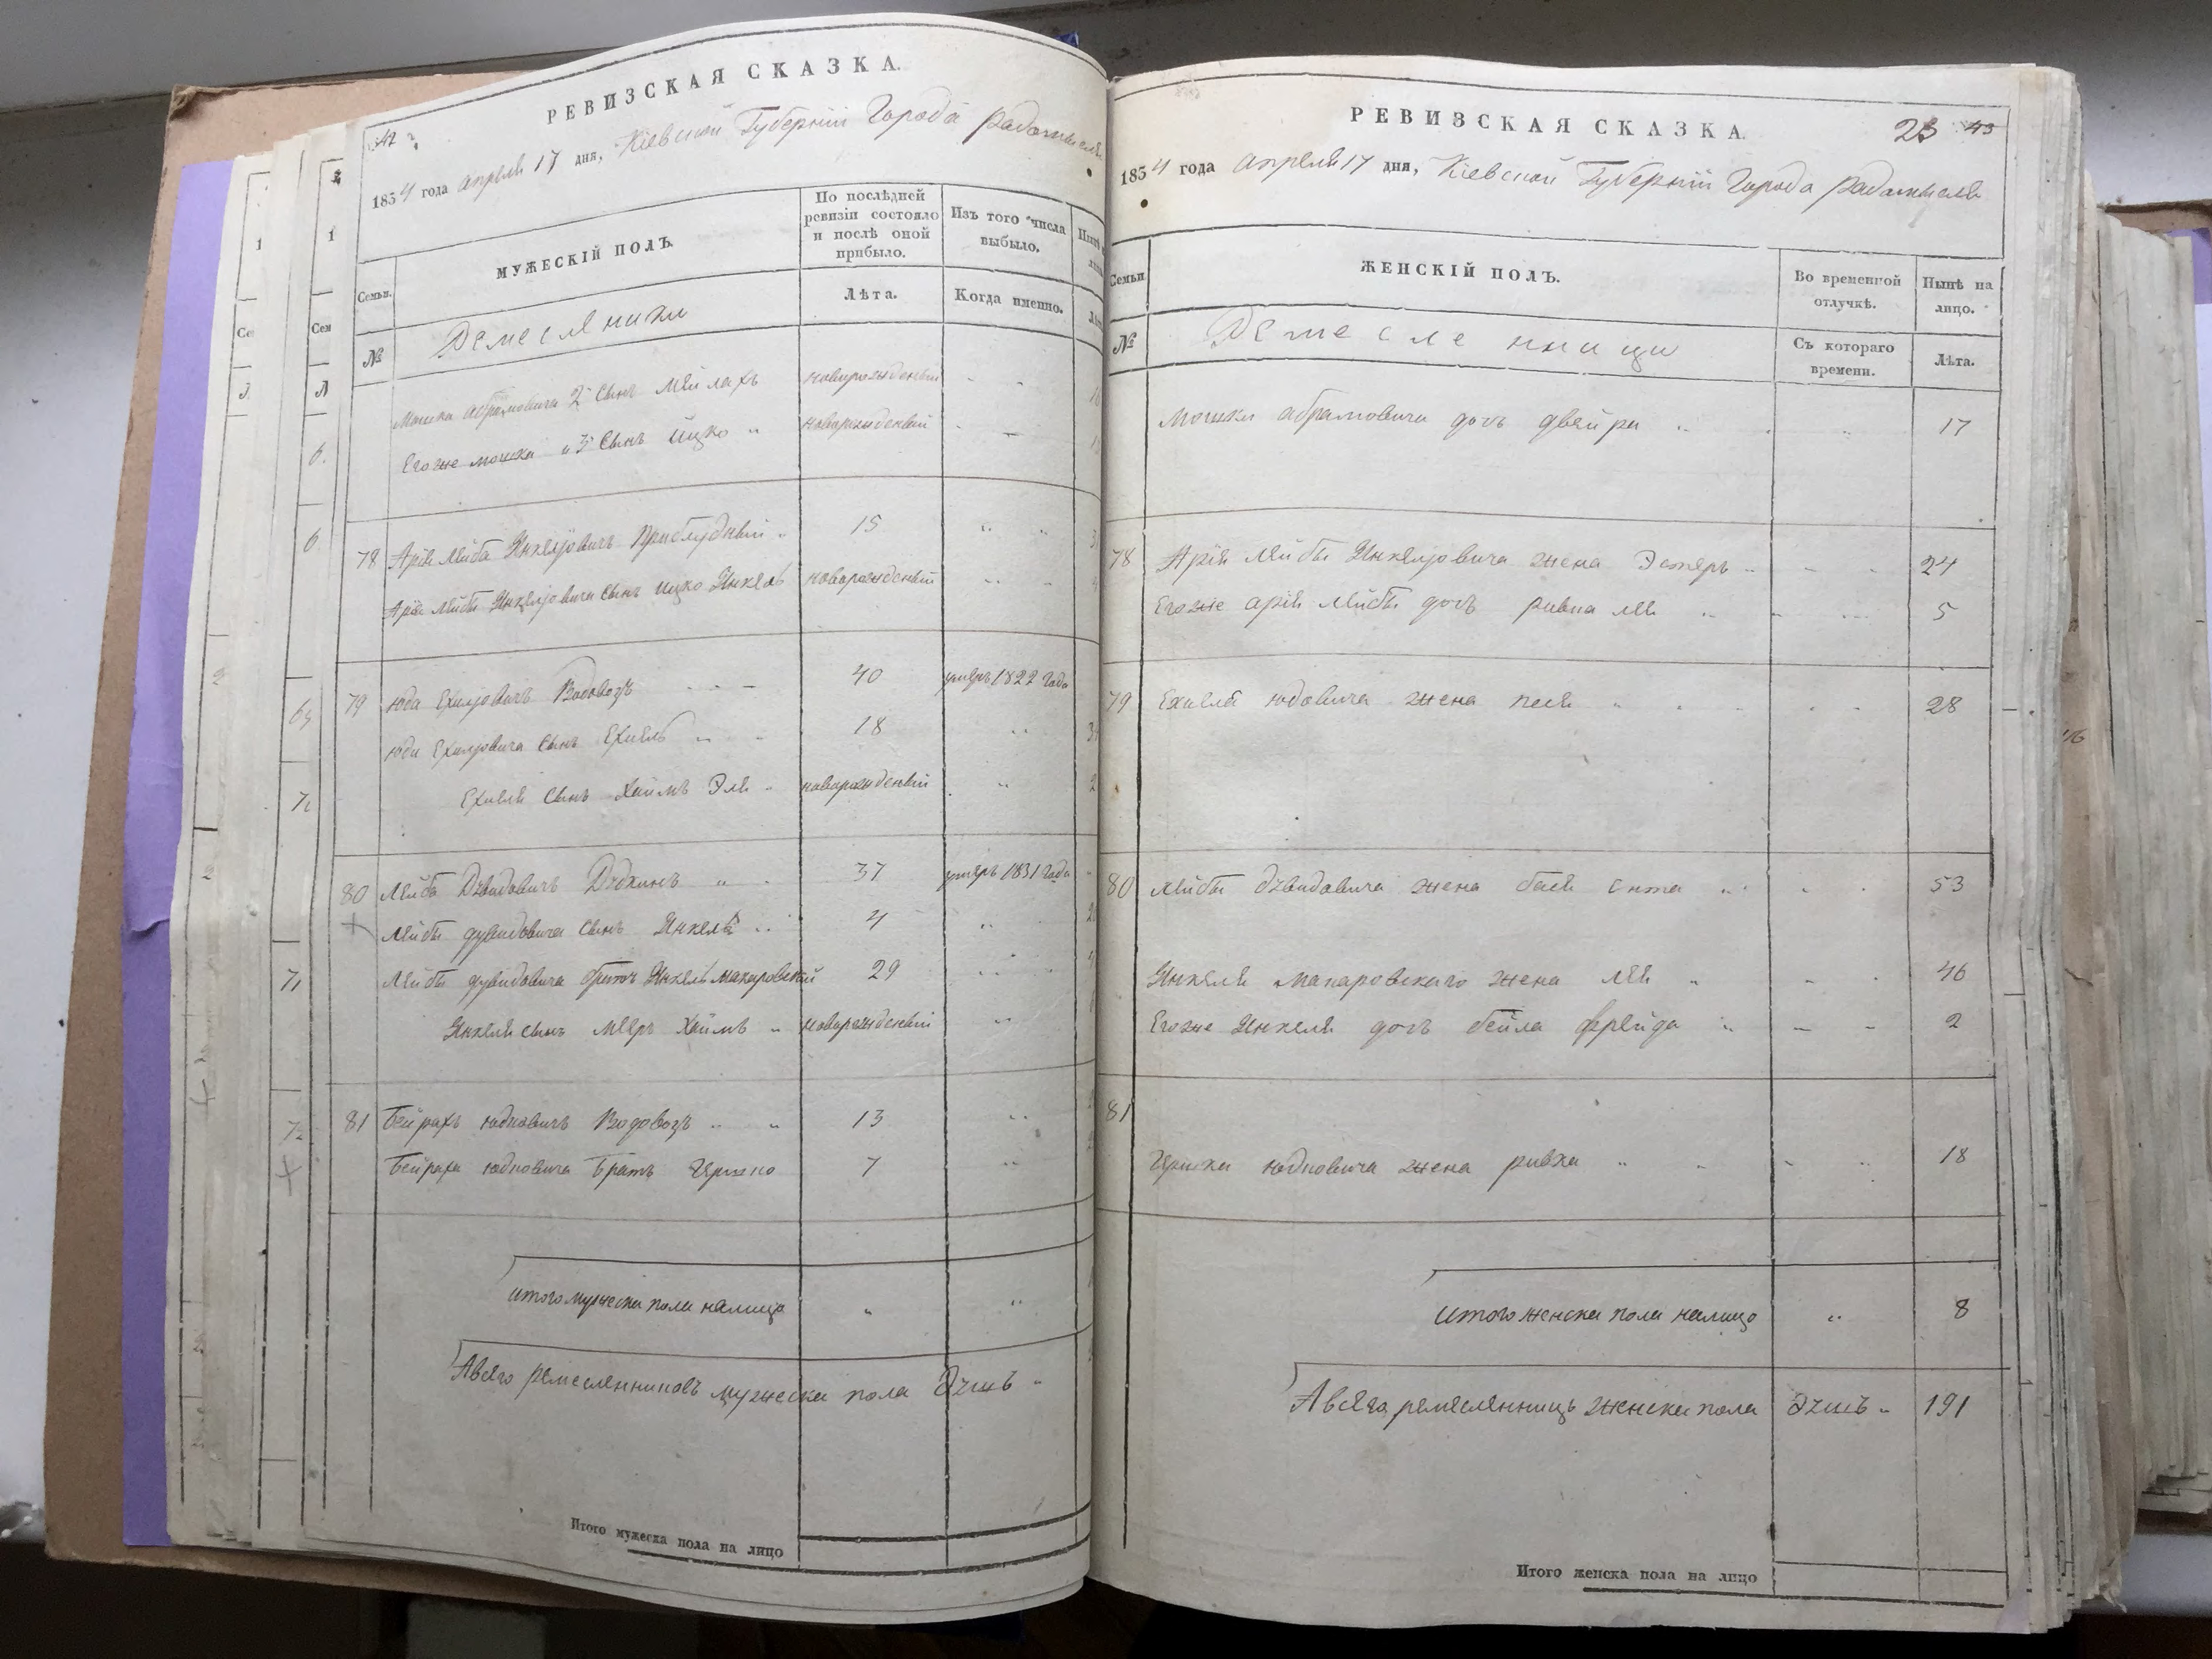 РЕВИЗСКАЯ СКАЗКА.
1834 года апреля 17 дня, Кіевской Губерніи Города Радомысля
Семьи.
МУЖЕСКІЙ ПОЛЪ.
По послѣдней ревизіи состояло и послѣ оной прибыло.
Изъ того числа выбыло.
№
Ремесленики
Лѣта.
Когда именно.
Мошка Абрамовича 2й сынъ Мейлахъ новорожденый
Его же мошки 3й сынъ Ицко новорожденый
78 Арія Лейба Янкелювичъ Приблудный 15
Арія Лейбы Янкелювича сынъ Ицко Янкель новорожденый
79 Юда Ехилювичъ Водовозъ 40 умеръ 1822 года
Юды Ехилювича сынъ Ехиель 18
Ехиеля сынъ Хаимъ Эля новорожденый
80 Лейба Дувидовичъ 37 умеръ 1831 года
Лейбы дувидовича сынъ Янкель 4
Лейбы дувидовича братъ Янкель Макаровский 29
Янкеля сынъ Мееръ Хаимъ новорожденый
81 Бейрахъ юдковичъ Водовозъ 13
Бейраха юдковича Братъ Гершко 7
итого мужеска пола налицо
Авсего ремесленниковъ мужеска пола душъ
Итого мужеска пола на лицо
РЕВИЗСКАЯ СКАЗКА.
23 43
1834 года апреля 17 дня, Кіевской Губерніи Города Радомысля
Семьи.
ЖЕНСКІЙ ПОЛЪ.
Во временной отлучкѣ.
Нынѣ на лицо.
№
Ремеслениици
Съ котораго времени.
Лѣта.
Мошки абрамовича дочь двейра 17
78 Арія Лейбы Янкелювича жена Эстеръ 24
Его же арія Лейбы дочь ривка лея 5
79 Ехиеля юдовича жена песя 28
80 Лейбы дувидовича жена бася ента 53
Янкеля макаровскаго жена лея 46
Его же Янкеля дочь бейла фрейда 2
81
Гершка юдковича жена ривка 18
итого женска пола налицо 8
Авсего ремесленницъ женска пола душъ 191
Итого женска пола на лицо